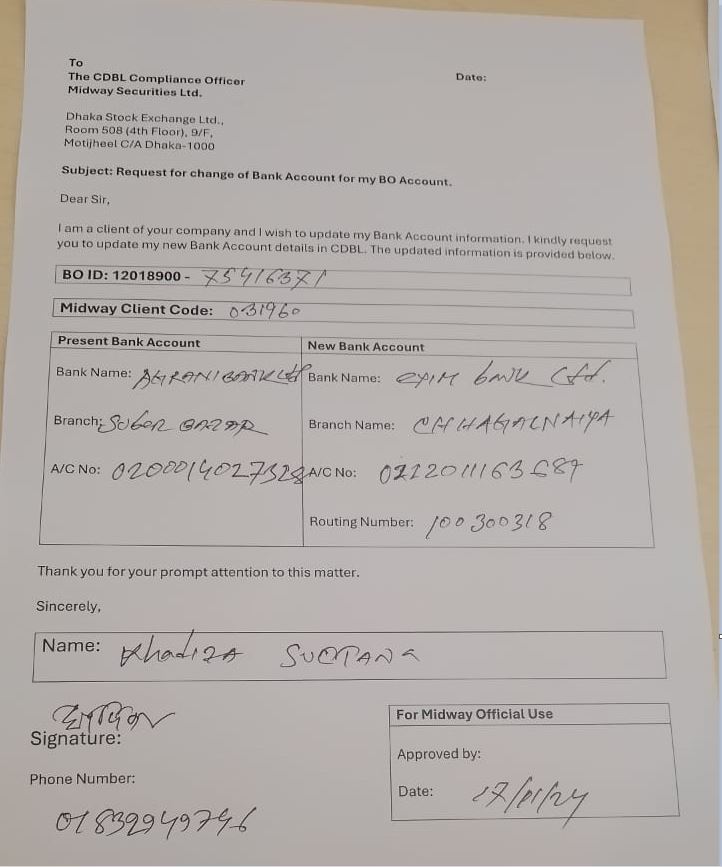 To
The CDBL Compliance Officer
Date:
Midway Securities Ltd.
Dhaka Stock Exchange Ltd.,
Room 508 (4th Floor), 9/F,
Motijheel C/A Dhaka-1000
Subject: Request for change of Bank Account for my BO Account.
Dear Sir,
I am a client of your company and I wish to update my Bank Account information. I kindly request
you to update my new Bank Account details in CDBL. The updated information is provided below.
BO ID: 12018900 - 75416371
Midway Client Code: 031960
Present Bank Account
New Bank Account
Bank Name: AGRANI BANK Ltd
Bank Name: EXIM bank Ltd.
Branch:
Branch Name: CHHAGALNAIYA
A/C No: 0200014027328
A/C No: 0212011163689
Routing Number: 100300318
Thank you for your prompt attention to this matter.
Sincerely,
Name: Khadiza SULTANA
Signature:
For Midway Official Use
Approved by:
Phone Number:
Date:
01832949746